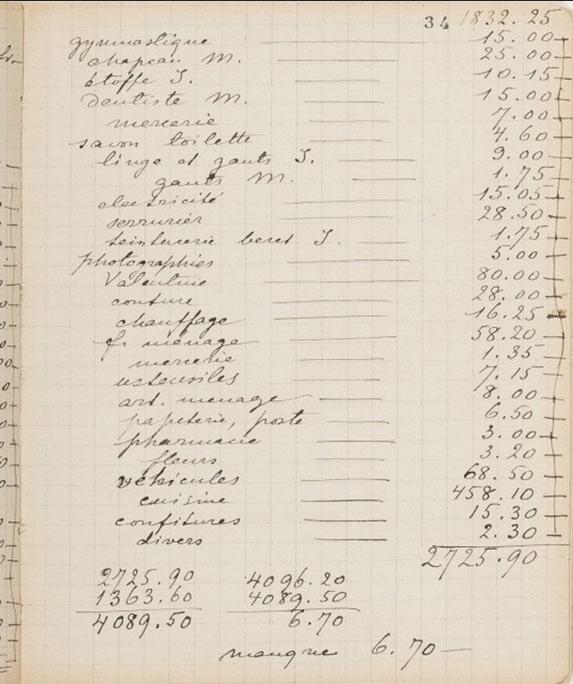 34 1832.25
gymnastique — 15.00
chapeau M. — 25.00
étoffe S. — 10.15
dentiste M. — 15.00
mercerie — 7.00
savon toilette — 4.60
linge et gants S. — 9.00
gants M. — 1.75
electricité — 15.05
serrurier — 28.50
teinturerie beret S. — 1.75
photographies — 5.00
Valentine — 80.00
couture — 28.00
chauffage — 16.25
f. ménage — 58.20
mercerie — 1.35
ustensiles — 7.15
art. menage — 8.00
papeterie, poste — 6.50
pharmacie — 3.00
fleurs — 3.20
véhicules — 68.50
cuisine — 458.10
confitures — 15.30
divers — 2.30
2725.90
2725.90 4096.20
1363.60 4089.50
4089.50 6.70
manque 6.70 —